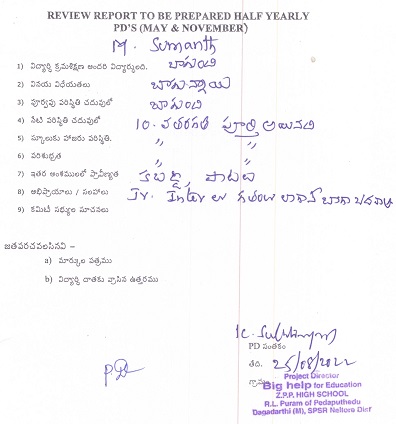 REVIEW REPORT TO BE PREPARED HALF YEARLY
PD'S (MAY & NOVEMBER)
M. Sumanth
1) విద్యార్థి క్రమశిక్షణ అందరి విద్యార్థులది. బాగుంది
2) వినయ విధేయతలు బాగున్నాయి
3) పూర్వపు పరిస్థితి చదువులో బాగుంది
4) నేటి పరిస్థితి చదువులో 10. వతరగతి పూర్తి అయినది
5) స్కూలుకు హాజరు పరిస్థితి. ,,  ,,
6) పరిశుభ్రత ,,  ,,
7) ఇతర అంశములలో ప్రావీణ్యత కబడ్డి, పాటలు
8) అభిప్రాయాలు / సలహాలు Jr. Inter లో
9) కమిటీ సభ్యుల సూచనలు
జతపరచవలసినవి –
a) మార్కుల పత్రము
b) విద్యార్థి దాతకు వ్రాసిన ఉత్తరము
PD సంతకం
తేది. 25/08/2022
గ్రామం
Project Director
Big help for Education
Z.P.P. HIGH SCHOOL
R.L. Puram of Pedaputhedu
Dagadarthi (M), SPSR Nellore Dist